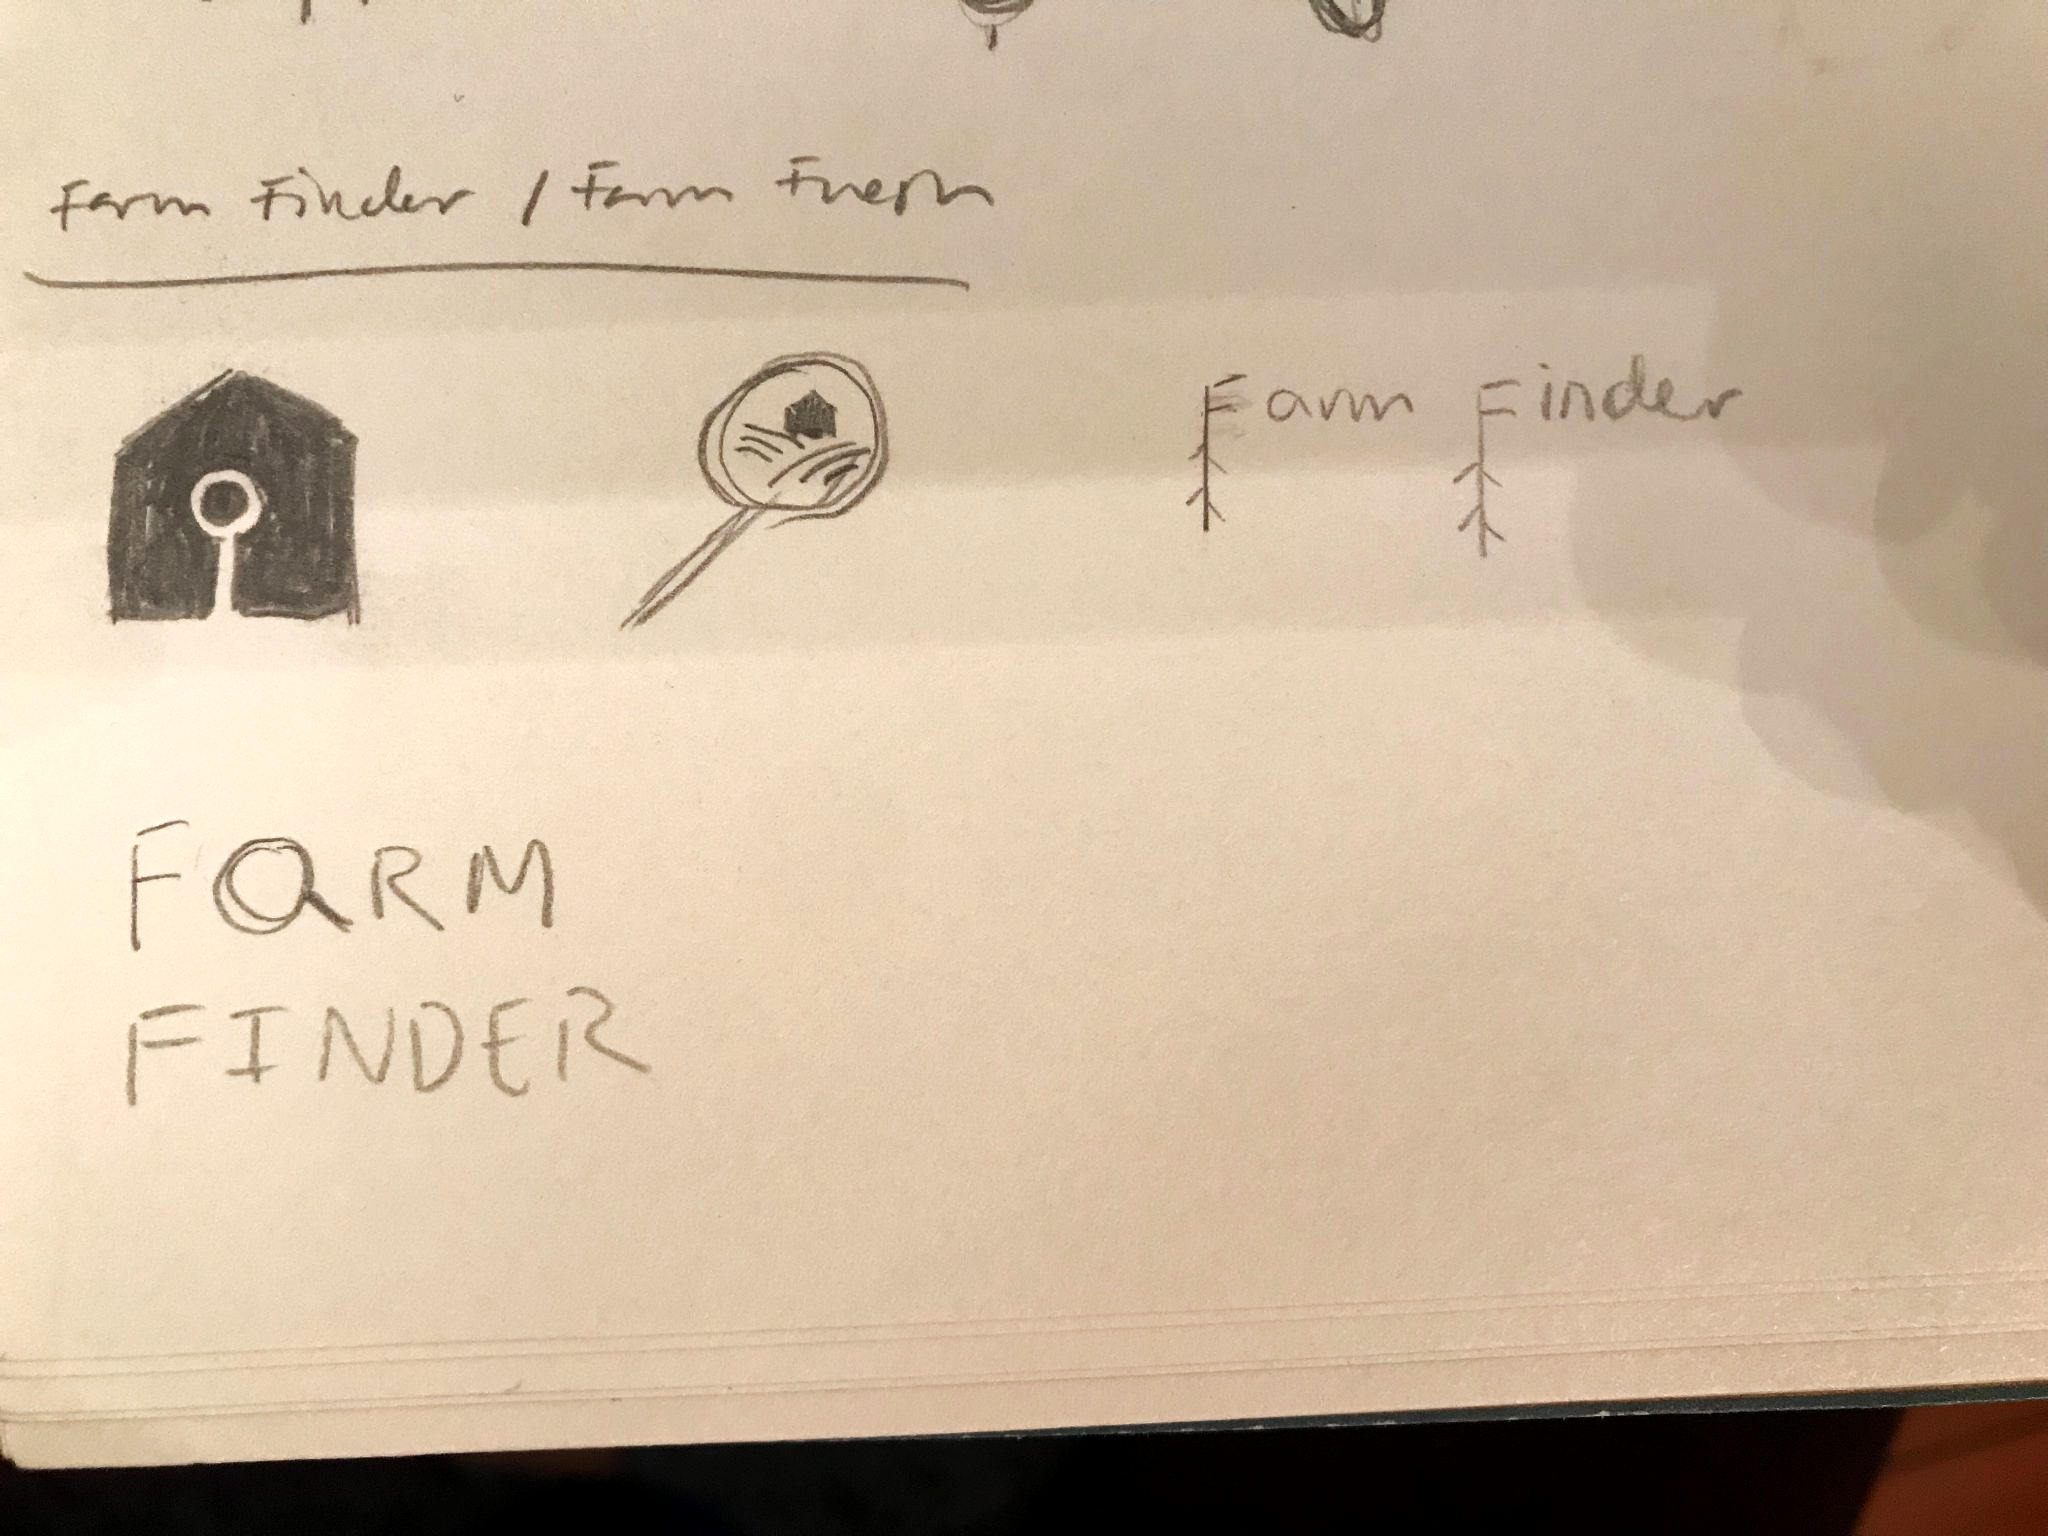 Farm Finder / Farm Fresh
Farm Finder
FaRM
FINDER